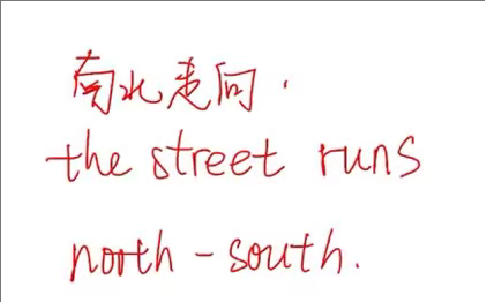 南北走向.
the street runs
north - south.